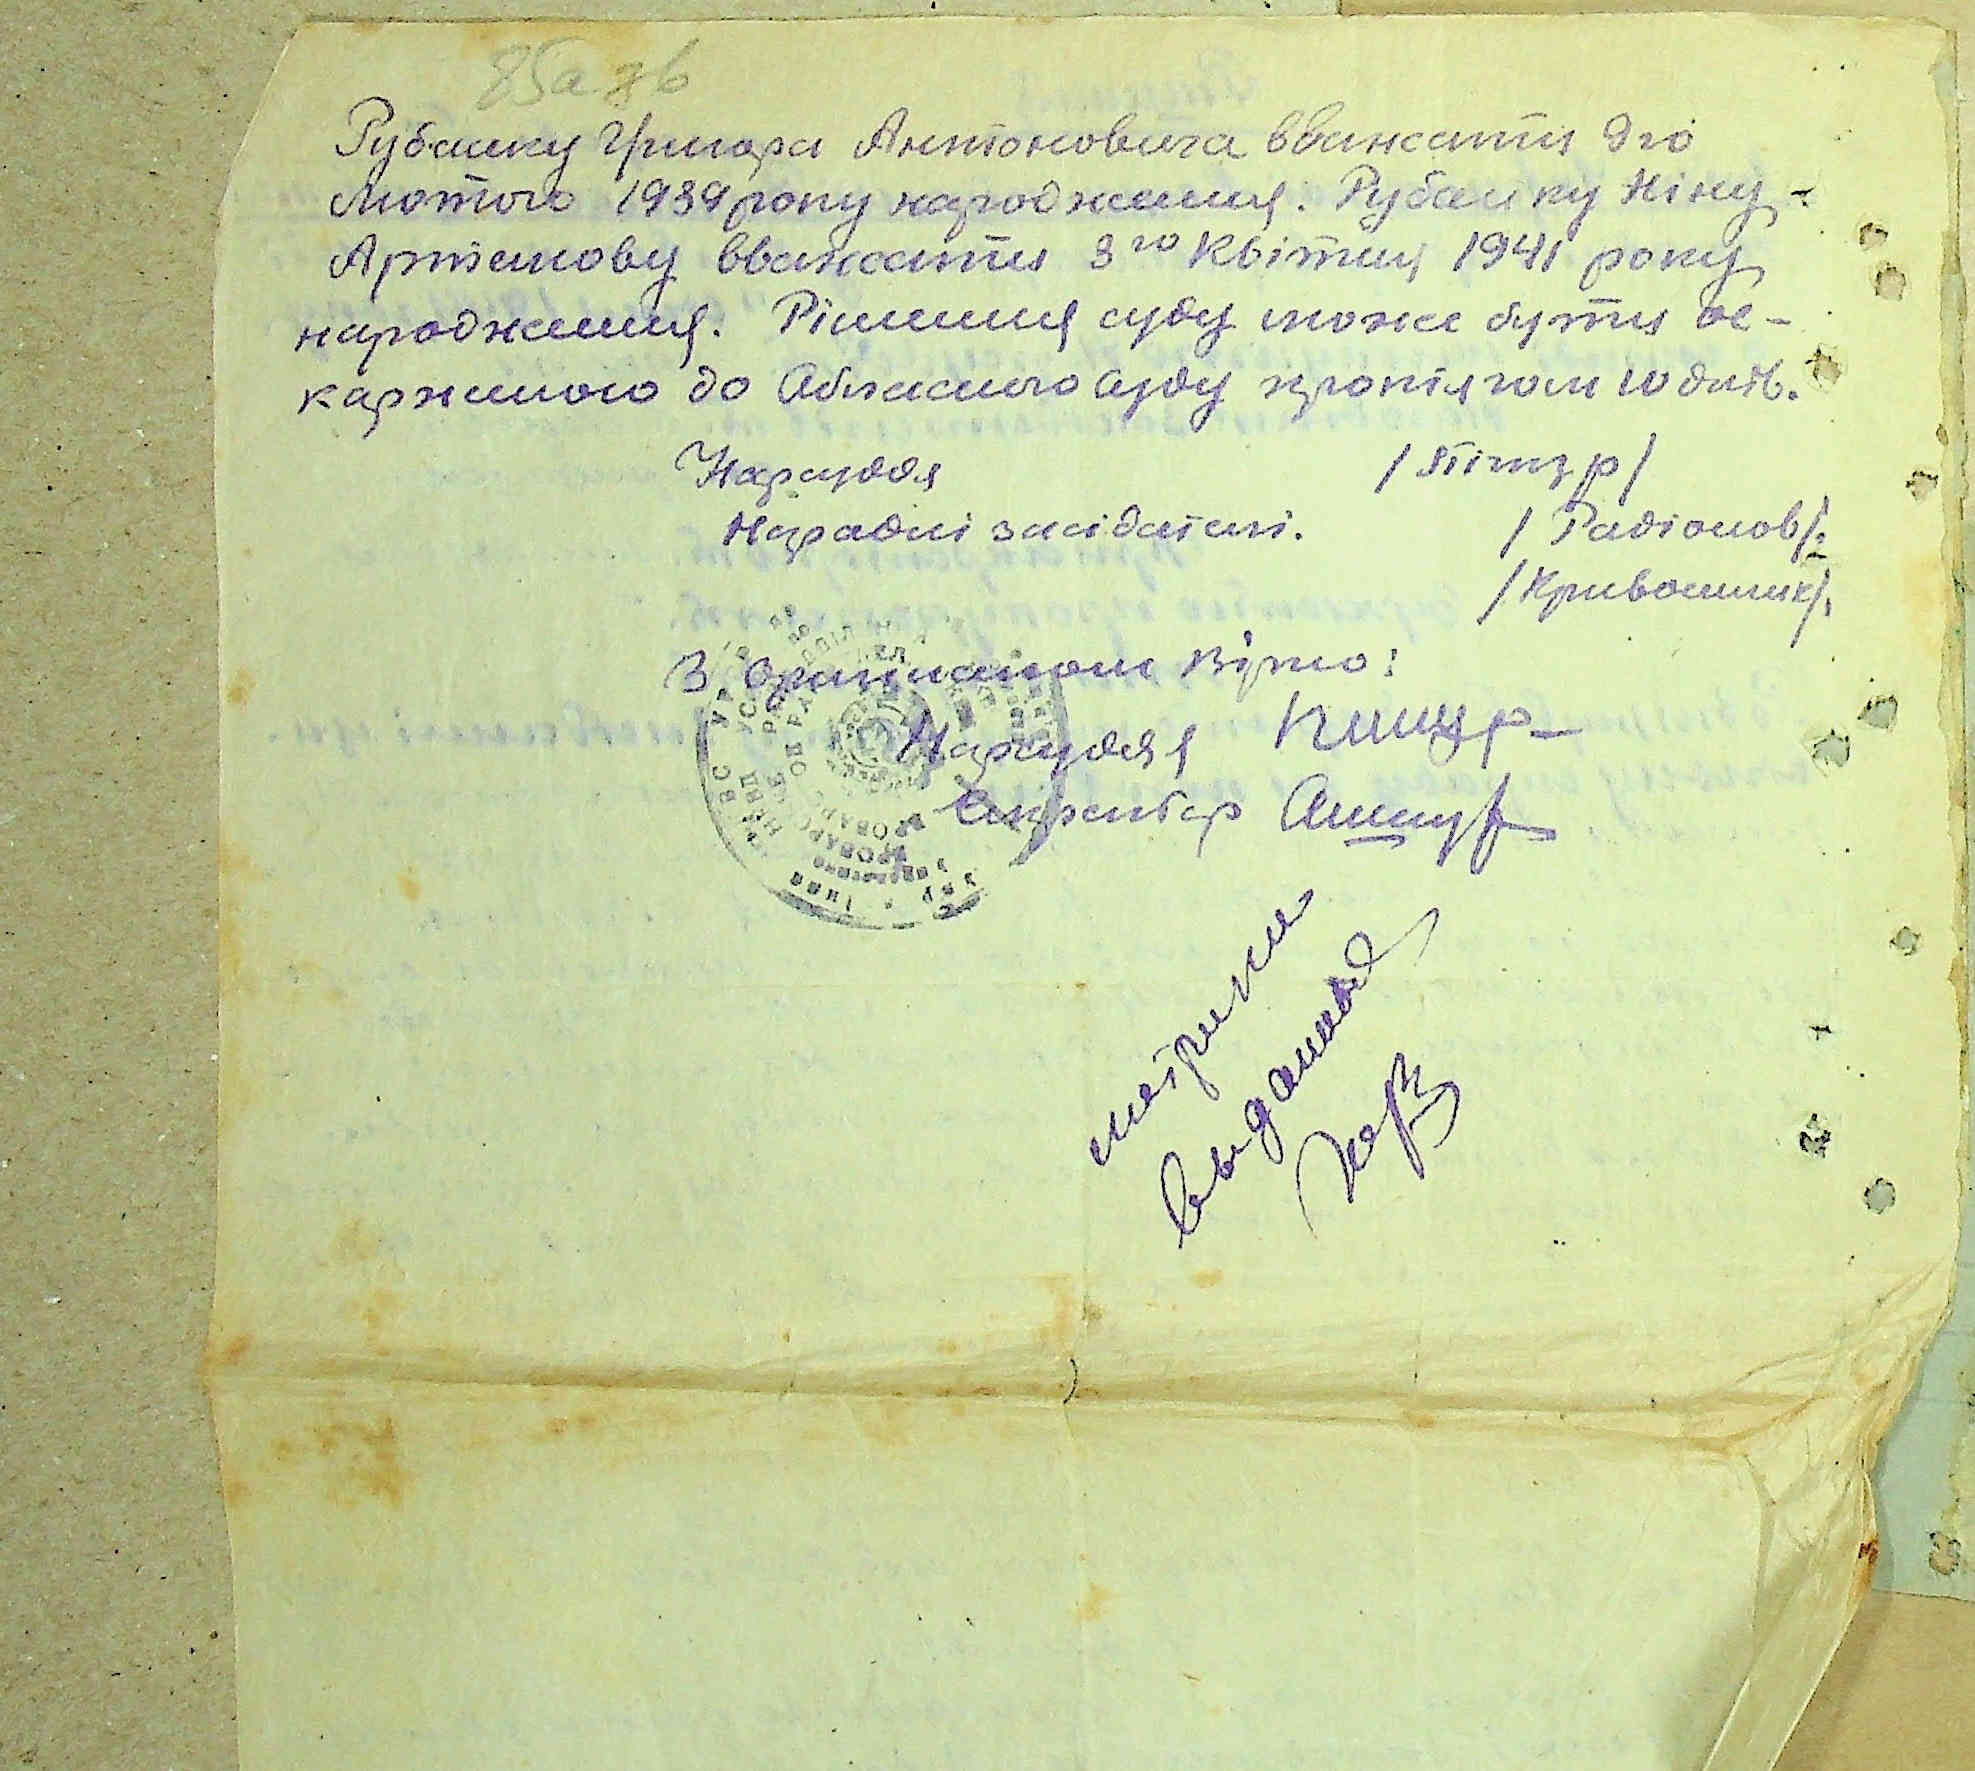 85а зв
Рубашку Григора Антоновича вважати 9го
Лютого 1939 року народження. Рубашку Ніну-
Артемову вважати 3го Квітня 1941 року
народження. Рішення суду може бути ос-
каржено до Обласного Суду протягом 10 днів.
Нарсуддя /Піщур/
Народні засідателі. /Радіонов/:
/Кривошик/.
З оригіналом Вірно:
Нарсуддя
Секретар
метрики
выданы